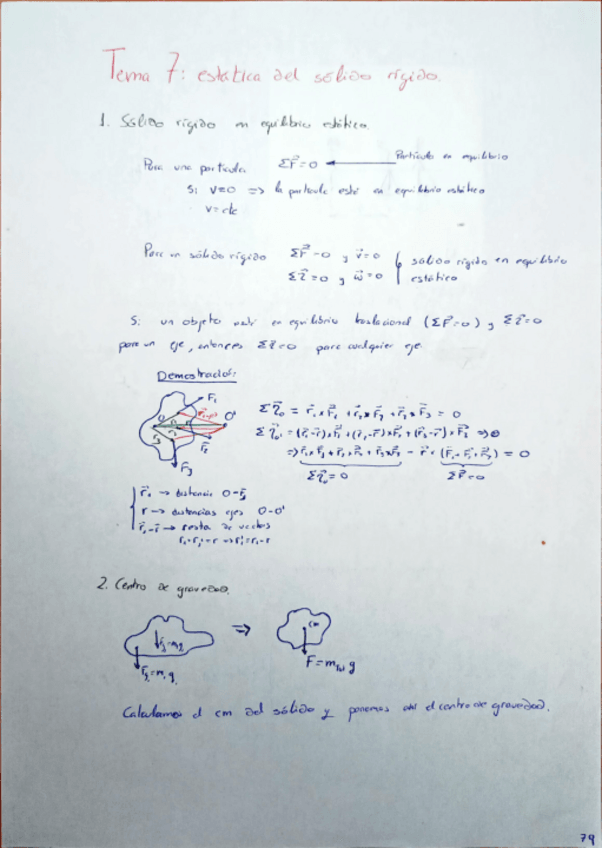 Tema 7: estática del sólido rígido.
1. Sólido rígido en equilibrio estático.
Para una partícula ΣF⃗=0 ← Partícula en equilibrio
Si v=0 => la partícula está en equilibrio estático
v=cte
Para un sólido rígido ΣF⃗=0 y v⃗=0
Στ⃗=0 y ω⃗=0
sólido rígido en equilibrio
estático
Si un objeto está en equilibrio traslacional (ΣF⃗=0) y Στ⃗=0
para un eje, entonces Στ⃗=0 para cualquier eje.
Demostración:
F₁
O O'
F₂
F₃
Στ⃗₀ = r⃗₁×F⃗₁ + r⃗₂×F⃗₂ + r⃗₃×F⃗₃ = 0
Στ⃗₀' = (r⃗₁-r⃗)×F⃗₁ + (r⃗₂-r⃗)×F⃗₂ + (r⃗₃-r⃗)×F⃗₃ =>
=> r⃗₁×F⃗₁ + r⃗₂×F⃗₂ + r⃗₃×F⃗₃ - r⃗×(F⃗₁+F⃗₂+F⃗₃) = 0
Στ⃗₀=0 ΣF⃗=0
→ distancia
r → distancias ejes O-O'
r⃗₁-r⃗ → resta de vectores
2. Centro de gravedad.
=>
cm
F=m g
Calculamos el cm del sólido y ponemos ahí el centro de gravedad.
79